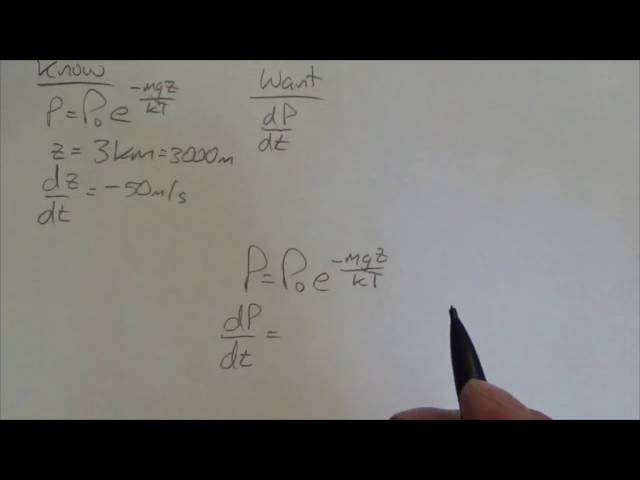 Know
P = P₀ e^(-mgz/kT)
z = 3km = 3000m
dz/dt = -50m/s
Want
dP/dt
P = P₀ e^(-mgz/kT)
dP/dt =